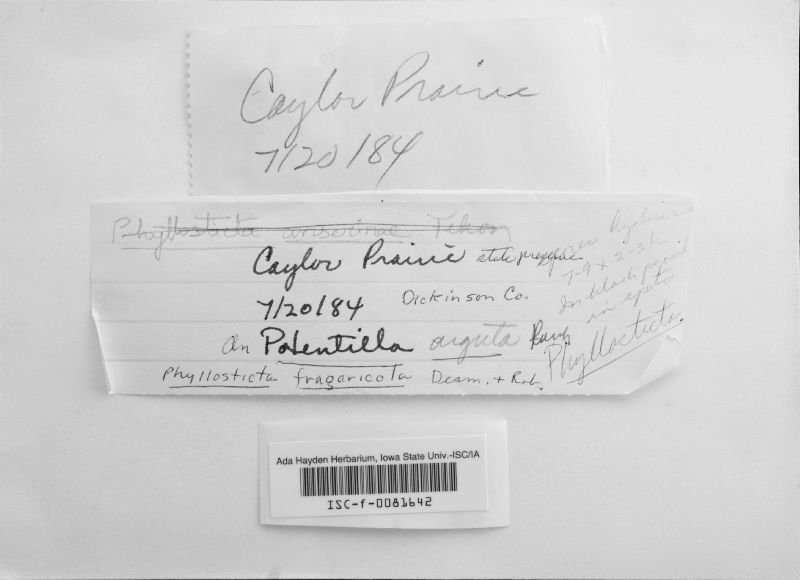 Caylor Prairie
7/20/84
Phyllosticta anserinae Tehon
Caylor Prairie state preserve
7/20/84 Dickinson Co.
On Potentilla arguta Pursh
Phyllosticta fragaricola Desm. + Rob.
spores hyaline
7-9 x 2-3 µ
In black pycnid
in spots
Phyllosticta
Ada Hayden Herbarium, Iowa State Univ.-ISC/IA
ISC-f-0081642